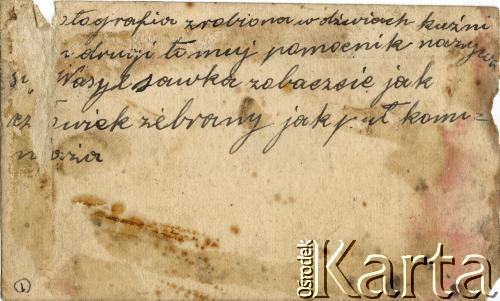 otografia zrobiona w dzwiach kuźni
a drugi to muj pomocnik nazywa
się Wasyl Sawka zobaczcie jak
człowiek zebrany jak pół komi=
niaża
1
Ośrodek
Karta